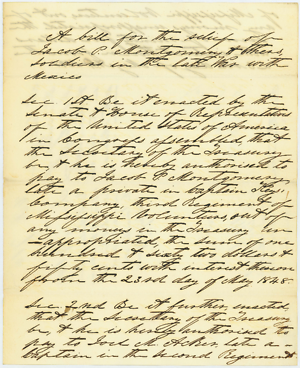 A bill for the relief of
Jacob P. Montgomery & others,
soldiers in the late War with
Mexico
Sec 1st Be it enacted by the
Senate & House of Representatives
of the United States of America
in Congress assembled that
the Secretary of the Treasury
be, & he is hereby authorised to
pay to Jacob P Montgomery
late a private in Captain
Company, third Regiment of
Mississippi Volunteers, out of
any moneys in the Treasury un-
-appropriated, the sum of one
hundred & sixty two dollars &
fifty cents with interest thereon
from the 23rd day of May 1848.
Sec 2nd Be it further enacted,
that the Secretary of the Treasury
be, & he is hereby authorised to
pay to Joel M. Acker, late a
Captain in the second Regiment